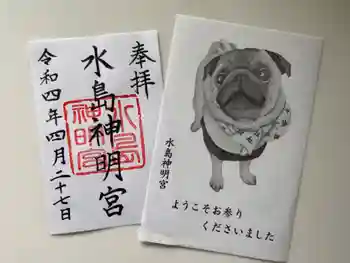 奉拝
水島神明宮
水島
神明宮
令和四年四月二十七日
水島神明宮
ようこそお参り
くださいました